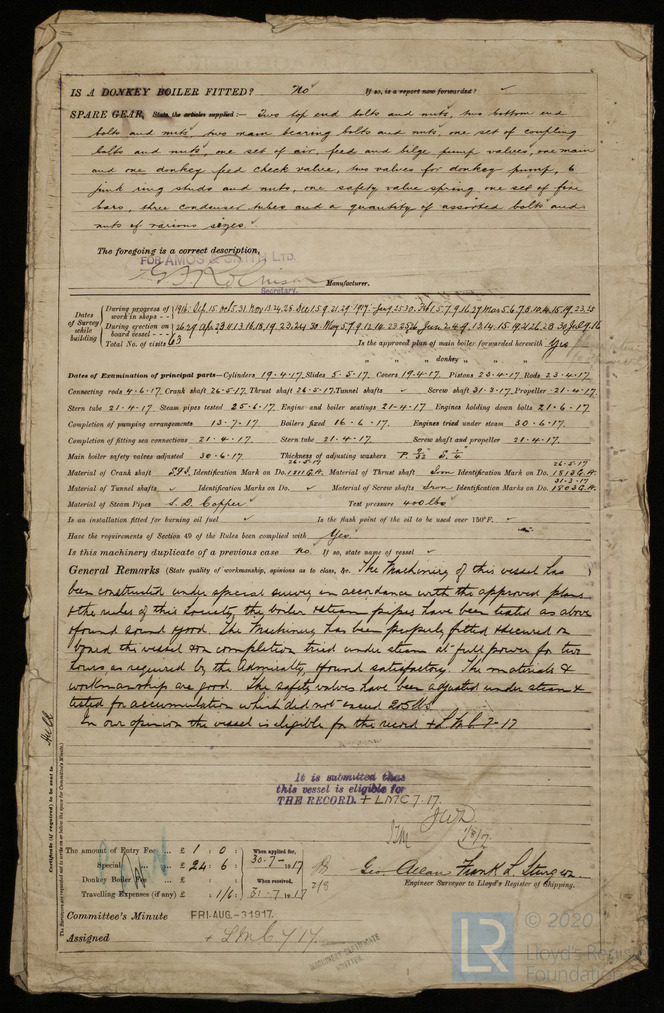 IS A DONKEY BOILER FITTED? No If so, is a report now forwarded?
SPARE GEAR. State the articles supplied:— Two top end bolts and nuts, two bottom end
bolts and nuts, two main bearing bolts and nuts, one set of coupling
bolts and nuts, one set of air, feed and bilge pump valves, one main
and one donkey feed check valve, two valves for donkey pump, 6
junk ring studs and nuts, one safety valve spring, one set of fire
bars, three condenser tubes and a quantity of assorted bolts and
nuts of various sizes.
The foregoing is a correct description,
FOR AMOS & SMITH LTD.
Secretary. Manufacturer.
Dates of Survey while building
During progress of work in shops - - 1916: Sep. 15 Oct 5. 31 Nov 13. 24. 28 Dec 1. 5. 9. 21. 29 1917: Jan 9. 25. 30 Feb 1. 5. 7. 9. 16. 27 Mar 5. 6. 7. 8. 10. 14. 15. 19. 23. 25
During erection on board vessel - - - 26. 29 Apr 23. 11. 13. 16. 18. 19. 23. 24. 30 May 5. 7. 9. 12. 14. 23. 25. 26 Jun 2. 4. 9. 13. 14. 15. 19. 21. 26. 28. 30 Jul 9. 16
Total No. of visits 63 Is the approved plan of main boiler forwarded herewith Yes
" " " donkey " " "
Dates of Examination of principal parts—Cylinders 19.4.17 Slides 5.5.17. Covers 19.4.17 Pistons 23.4.17 Rods 23.4.17
Connecting rods 4.6.17. Crank shaft 26.5.17 Thrust shaft 26.5.17. Tunnel shafts Screw shaft 31.3.17. Propeller 21.4.17
Stern tube 21.4.17 Steam pipes tested 25.6.17 Engine and boiler seatings 21.4.17 Engines holding down bolts 21.6.17
Completion of pumping arrangements 13.7.17 Boilers fixed 16.6.17 Engines tried under steam 30.6.17
Completion of fitting sea connections 21.4.17 Stern tube 21.4.17 Screw shaft and propeller 21.4.17
Main boiler safety valves adjusted 30.6.17 Thickness of adjusting washers
Material of Crank shaft Identification Mark on Do. 26.5.17 1811 G.A. Material of Thrust shaft Iron Identification Mark on Do. 26.5.17 1813 G.A.
Material of Tunnel shafts Identification Marks on Do. Material of Screw shafts Iron Identification Marks on Do. 31.3.17 1803 G.A.
Material of Steam Pipes S.D. Copper Test pressure 400 lbs
Is an installation fitted for burning oil fuel Is the flash point of the oil to be used over 150°F.
Have the requirements of Section 49 of the Rules been complied with Yes
Is this machinery duplicate of a previous case no If so, state name of vessel
General Remarks (State quality of workmanship, opinions as to class, &c. The Machinery of this vessel has
been constructed under special survey in accordance with the approved plans
& the rules of this Society, the boiler & steam pipes have been tested as above
& found sound & good. The Machinery has been properly fitted & secured on
board the vessel & on completion tried under steam at full power for two
hours as required by the Admiralty, & found satisfactory. The materials &
workmanship are good. The safety valves have been adjusted under steam &
tested for accumulation which did not exceed 205 lbs
In our opinion the vessel is eligible for the record + L.M.C. 7-17
It is submitted that
this vessel is eligible for
THE RECORD. + LMC 7.17.
1/8/17
Certificate (if required) to be sent to Hull
The amount of Entry Fee ... £ 1 : 0 : When applied for,
Special ... £ 24 : 6 : 30-7-1917
Donkey Boiler Fee ... £ : : When received,
Travelling Expenses (if any) £ : 1/6 : 31-7-1917 2/8
Geo. Allan Frank L. Sturgeon
Engineer Surveyor to Lloyd's Register of Shipping.
Committee's Minute FRI. AUG. -3 1917.
Assigned + L.M.C. 7.17.
© 2020
LR Lloyd's Register
Foundation